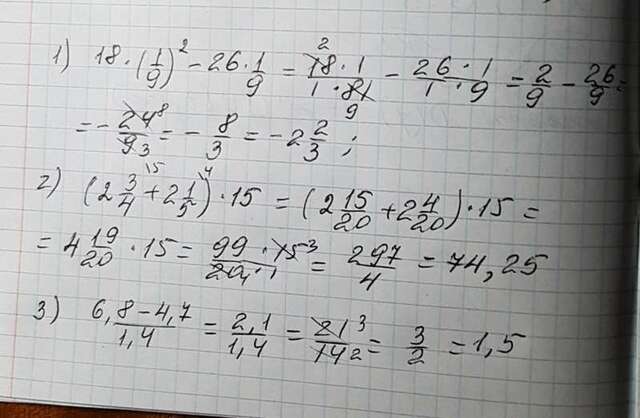 1) 18·(1/9)² - 26·1/9 = 18²·1/1·81₉ - 26·1/1·9 = 2/9 - 26/9 =
= - 24⁸/9₃ = - 8/3 = -2 2/3 ;
2) (2 3/4¹⁵ + 2 1/5⁴)·15 = (2 15/20 + 2 4/20)·15 =
= 4 19/20 · 15 = 99·15³/20₄·1 = 297/4 = 74,25
3) 6,8-4,7/1,4 = 2,1/1,4 = 21³/14₂ = 3/2 = 1,5